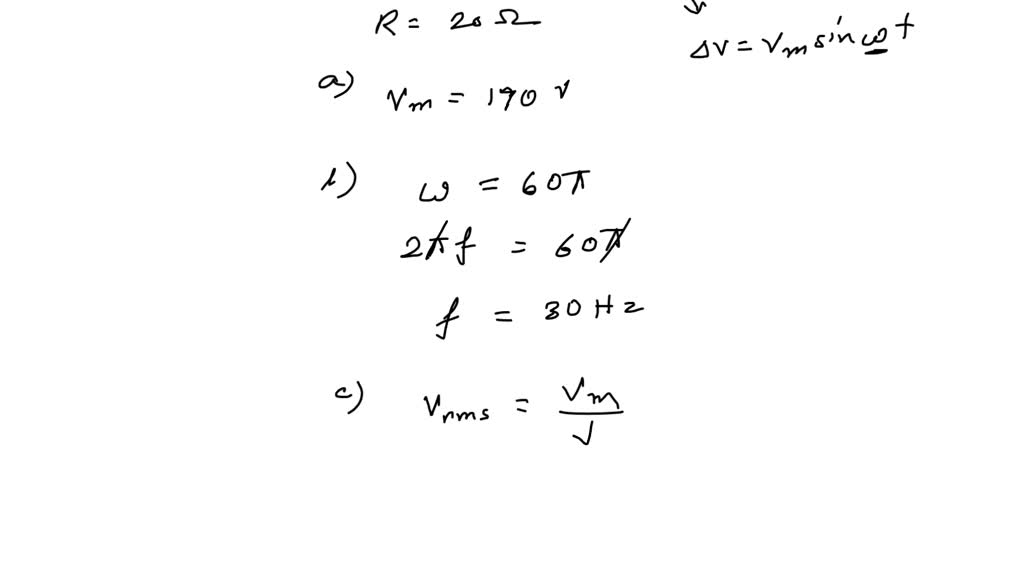 R = 20 Ω
ΔV = Vm sin ωt
a) Vm = 170 V
b) ω = 60π
2πf = 60π
f = 30 Hz
c) Vrms = Vm / √